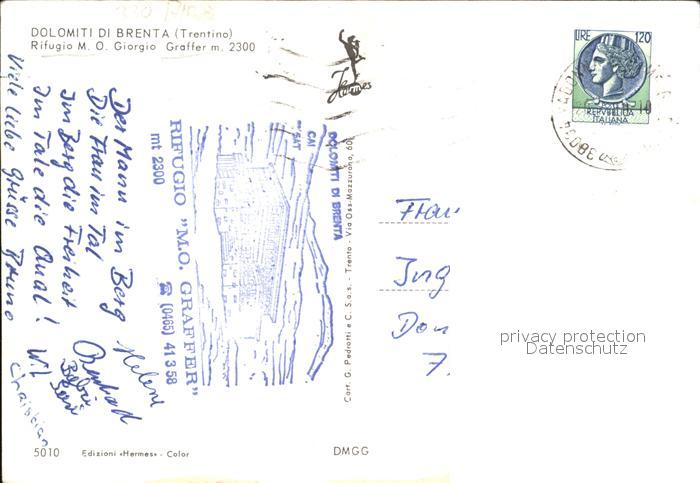 DOLOMITI DI BRENTA (Trentino)
Rifugio M. O. Giorgio Graffer m. 2300
Hermes
LIRE 120
REPVBBLICA
ITALIANA
38084
Der Mann im Berg
Die Frau im Tal
Im Berg die Freiheit
Im Tale die Qual!
Viele liebe Grüsse Bruno
Helene
DOLOMITI DI BRENTA
CAI
SAT
RIFUGIO "M.O. GRAFFER"
mt 2300 ☎ (0465) 41358
Cart. G. Pedrotti e C. S.a.s. - Trento - Via Oss. Mazzurana, 60
Frau
Ing
Don
7.
privacy protection
Datenschutz
5010 Edizioni «Hermes» - Color DMGG